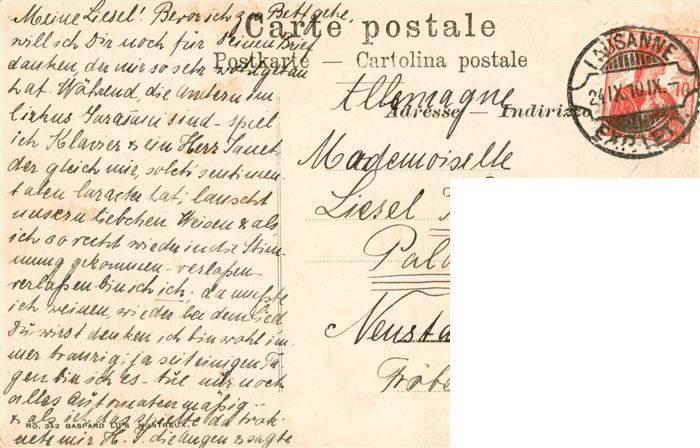 Meine Liesel! Bevor ich zu Bett gehe,
will ich Dir noch für Deinen Brief
danken, der mir so sehr wohlgetan
hat. Während, die Andern im
Cirkus Sarasani sind – spiel
ich Klavier & ein Herr
der gleich mir, solch sentimen-
talen Caracter hat, lauscht
unsern liebchen Weisen & als
ich so recht wieder in die Stim-
mung gekommen – verlaßen
verlaßen bin ich ich. da mußte
ich weinen, wieder bei dem Lied
Du wirst denken ich bin wohl im-
mer traurig; ja seit einigen Ta-
gen bin ich es – tue nur noch
alles Automatenmäßig –
& als ich das spielte da trok-
nete mir H. S. die Augen & sagte
No. 342 GASPARD LIPS MONTREUX.
Carte postale
Postkarte — Cartolina postale
Allemagne
Adresse — Indirizzo
Mademoiselle
Liesel
Neusta
LAUSANNE
24.IX.10.IX.-7
10